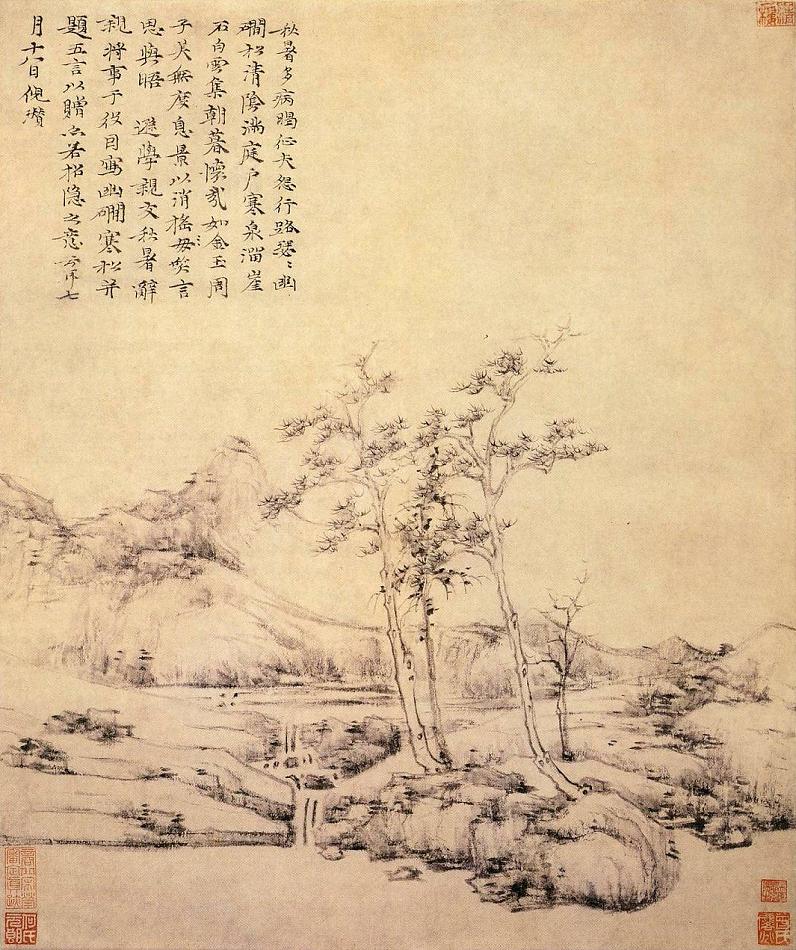 秋暑多病暍征夫怨行路瑟〻幽
磵松清陰滿庭戶寒泉溜崖
石白雲集朝暮懷哉如金玉周
子美無度息景以消搖笑言
思與晤 遜學親友秋暑辭
親將事于役因寫幽磵寒松并
題五言以贈亦若招隱之意 七
月十八日倪瓚
何氏元朗